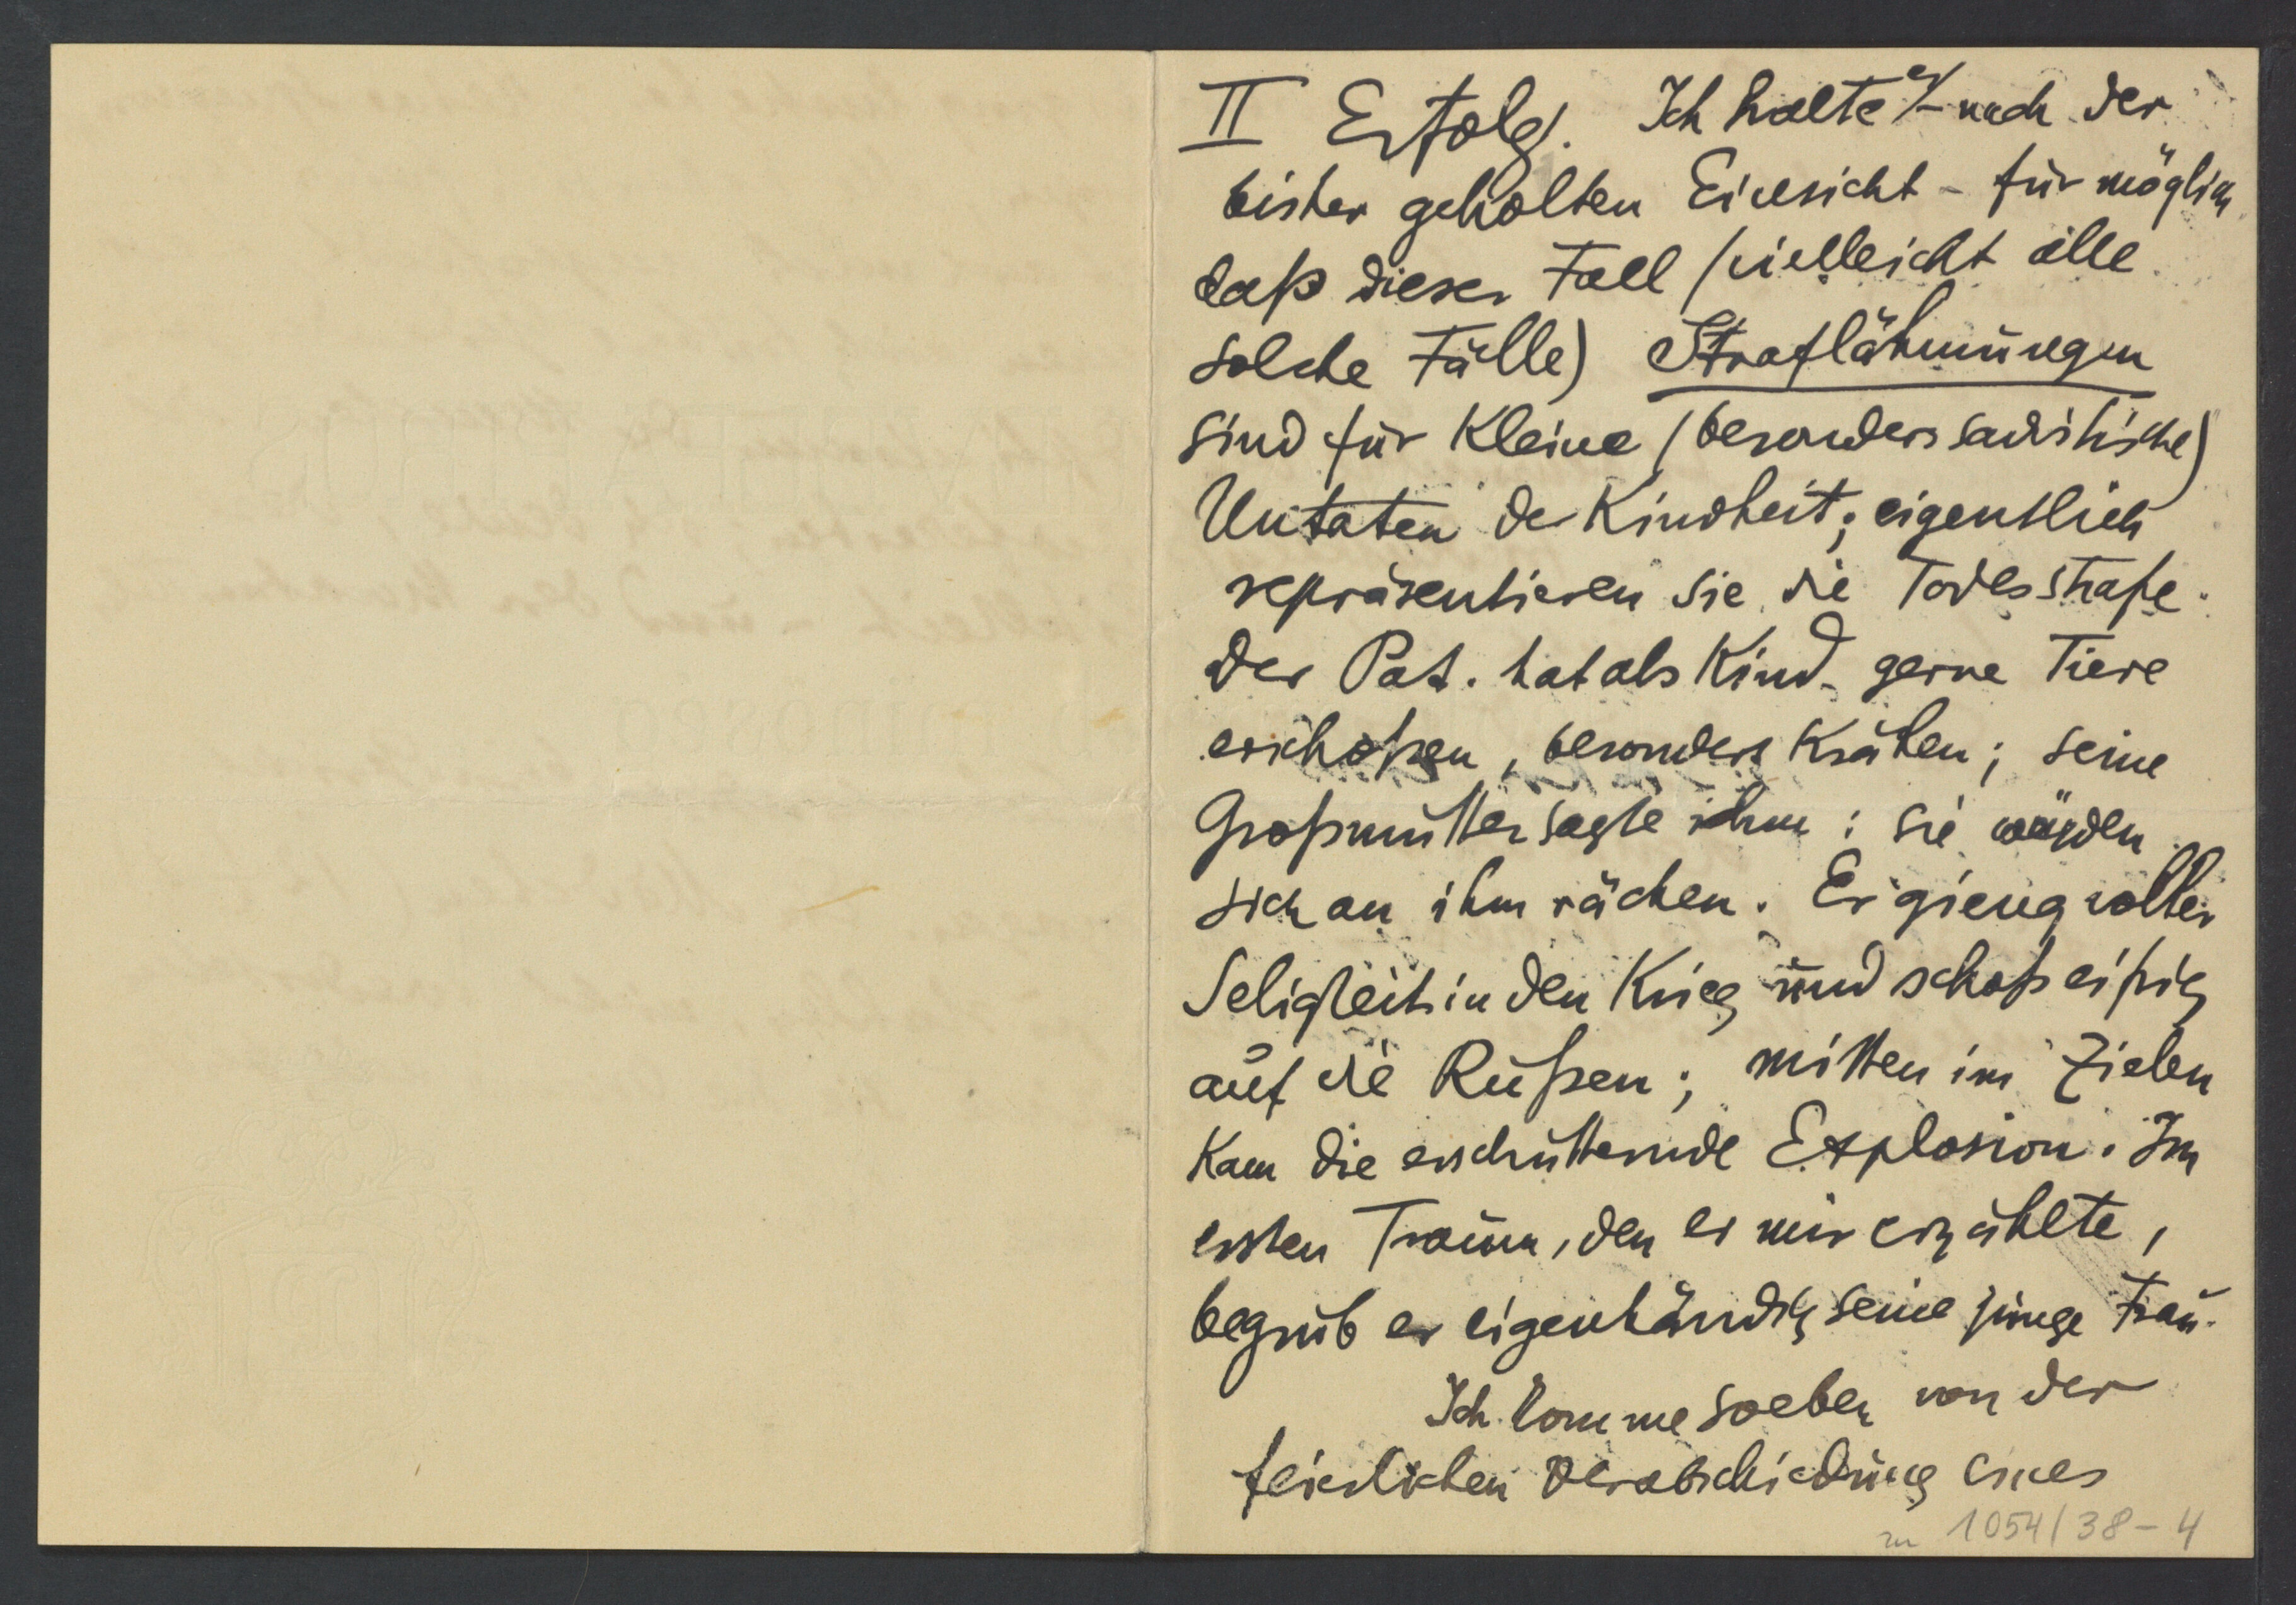 II Erfolg. Ich halte es – nach der
bisher geholten Einsicht – für möglich
daß dieser Fall (vielleicht alle
solche Fälle) Straflähmungen
sind für Kleine (besonders sadistische)
Untaten der Kindheit; eigentlich
repräsentieren sie die Todesstrafe.
Der Pat. hat als Kind gerne Tiere
erschoßen, besonders Krähen; seine
Großmutter sagte ihm: sie würden
sich an ihm rächen. Er gieng voller
Seligkeit in den Krieg und schoß eifrig
auf die Rußen; mitten im Zielen
kam die erschütternde Explosion. Im
ersten Traum, den er mir erzählte,
begrub er eigenhändig seine junge Frau.
Ich komme soeben von der
feierlichen Verabschiedung eines
zu 1054/38-4